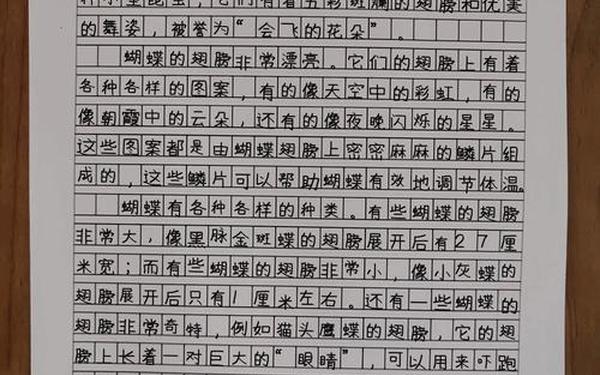 种小型昆虫，它们有着五彩斑斓的翅膀和优美
的舞姿，被誉为“会飞的花朵”。
蝴蝶的翅膀非常漂亮。它们的翅膀上有着
各种各样的图案，有的像天空中的彩虹，有的
像朝霞中的云朵，还有的像夜晚闪烁的星星。
这些图案都是由蝴蝶翅膀上密密麻麻的鳞片组
成的，这些鳞片可以帮助蝴蝶有效地调节体温。
蝴蝶有各种各样的种类。有些蝴蝶的翅膀
非常大，像黑脉金斑蝶的翅膀展开后有27厘
米宽；而有些蝴蝶的翅膀非常小，像小灰蝶的
翅膀展开后只有1厘米左右。还有一些蝴蝶的
翅膀非常奇特，例如猫头鹰蝶的翅膀，它的翅
膀上长着一对巨大的“眼睛”，可以用来吓跑